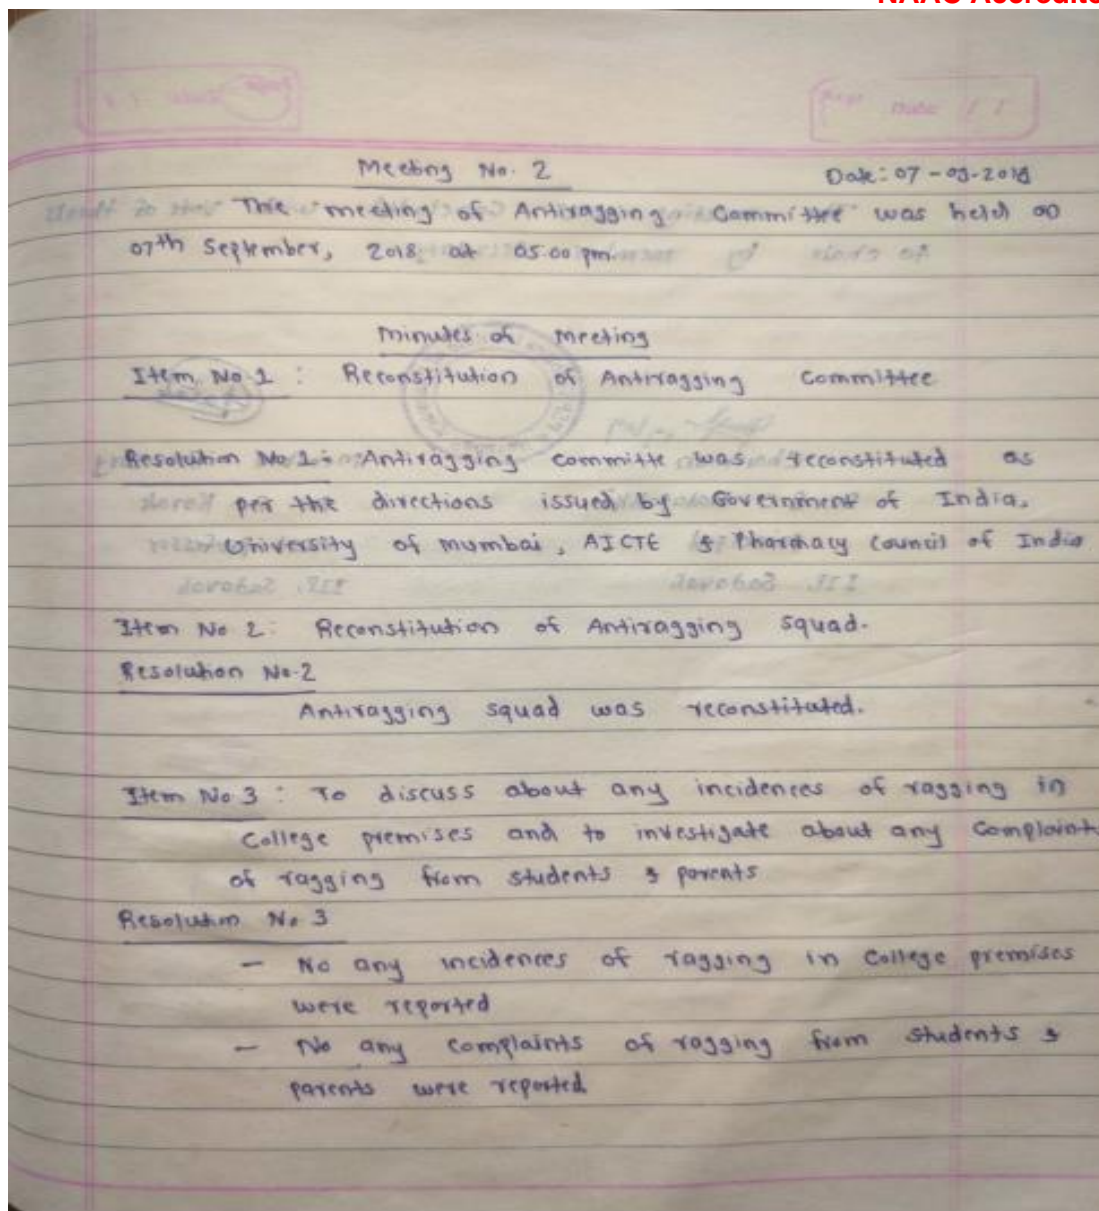 Page Date / /
Meeting No. 2 Date: 07-09-2018
The meeting of Antiragging Committee was held on
07th September, 2018 at 05.00 pm.
Minutes of Meeting
Item No 1 : Reconstitution of Antiragging Committee
Resolution No 1 : Antiragging committe was reconstituted as
per the directions issued by Government of India,
University of Mumbai, AICTE & Pharmacy Council of India
Item No 2: Reconstitution of Antiragging squad.
Resolution No.2
Antiragging squad was reconstituted.
Item No 3 : To discuss about any incidences of ragging in
College premises and to investigate about any Complaints
of ragging from students & parents
Resolution No 3
- No any incidences of ragging in College premises
were reported
- No any complaints of ragging from students &
parents were reported.